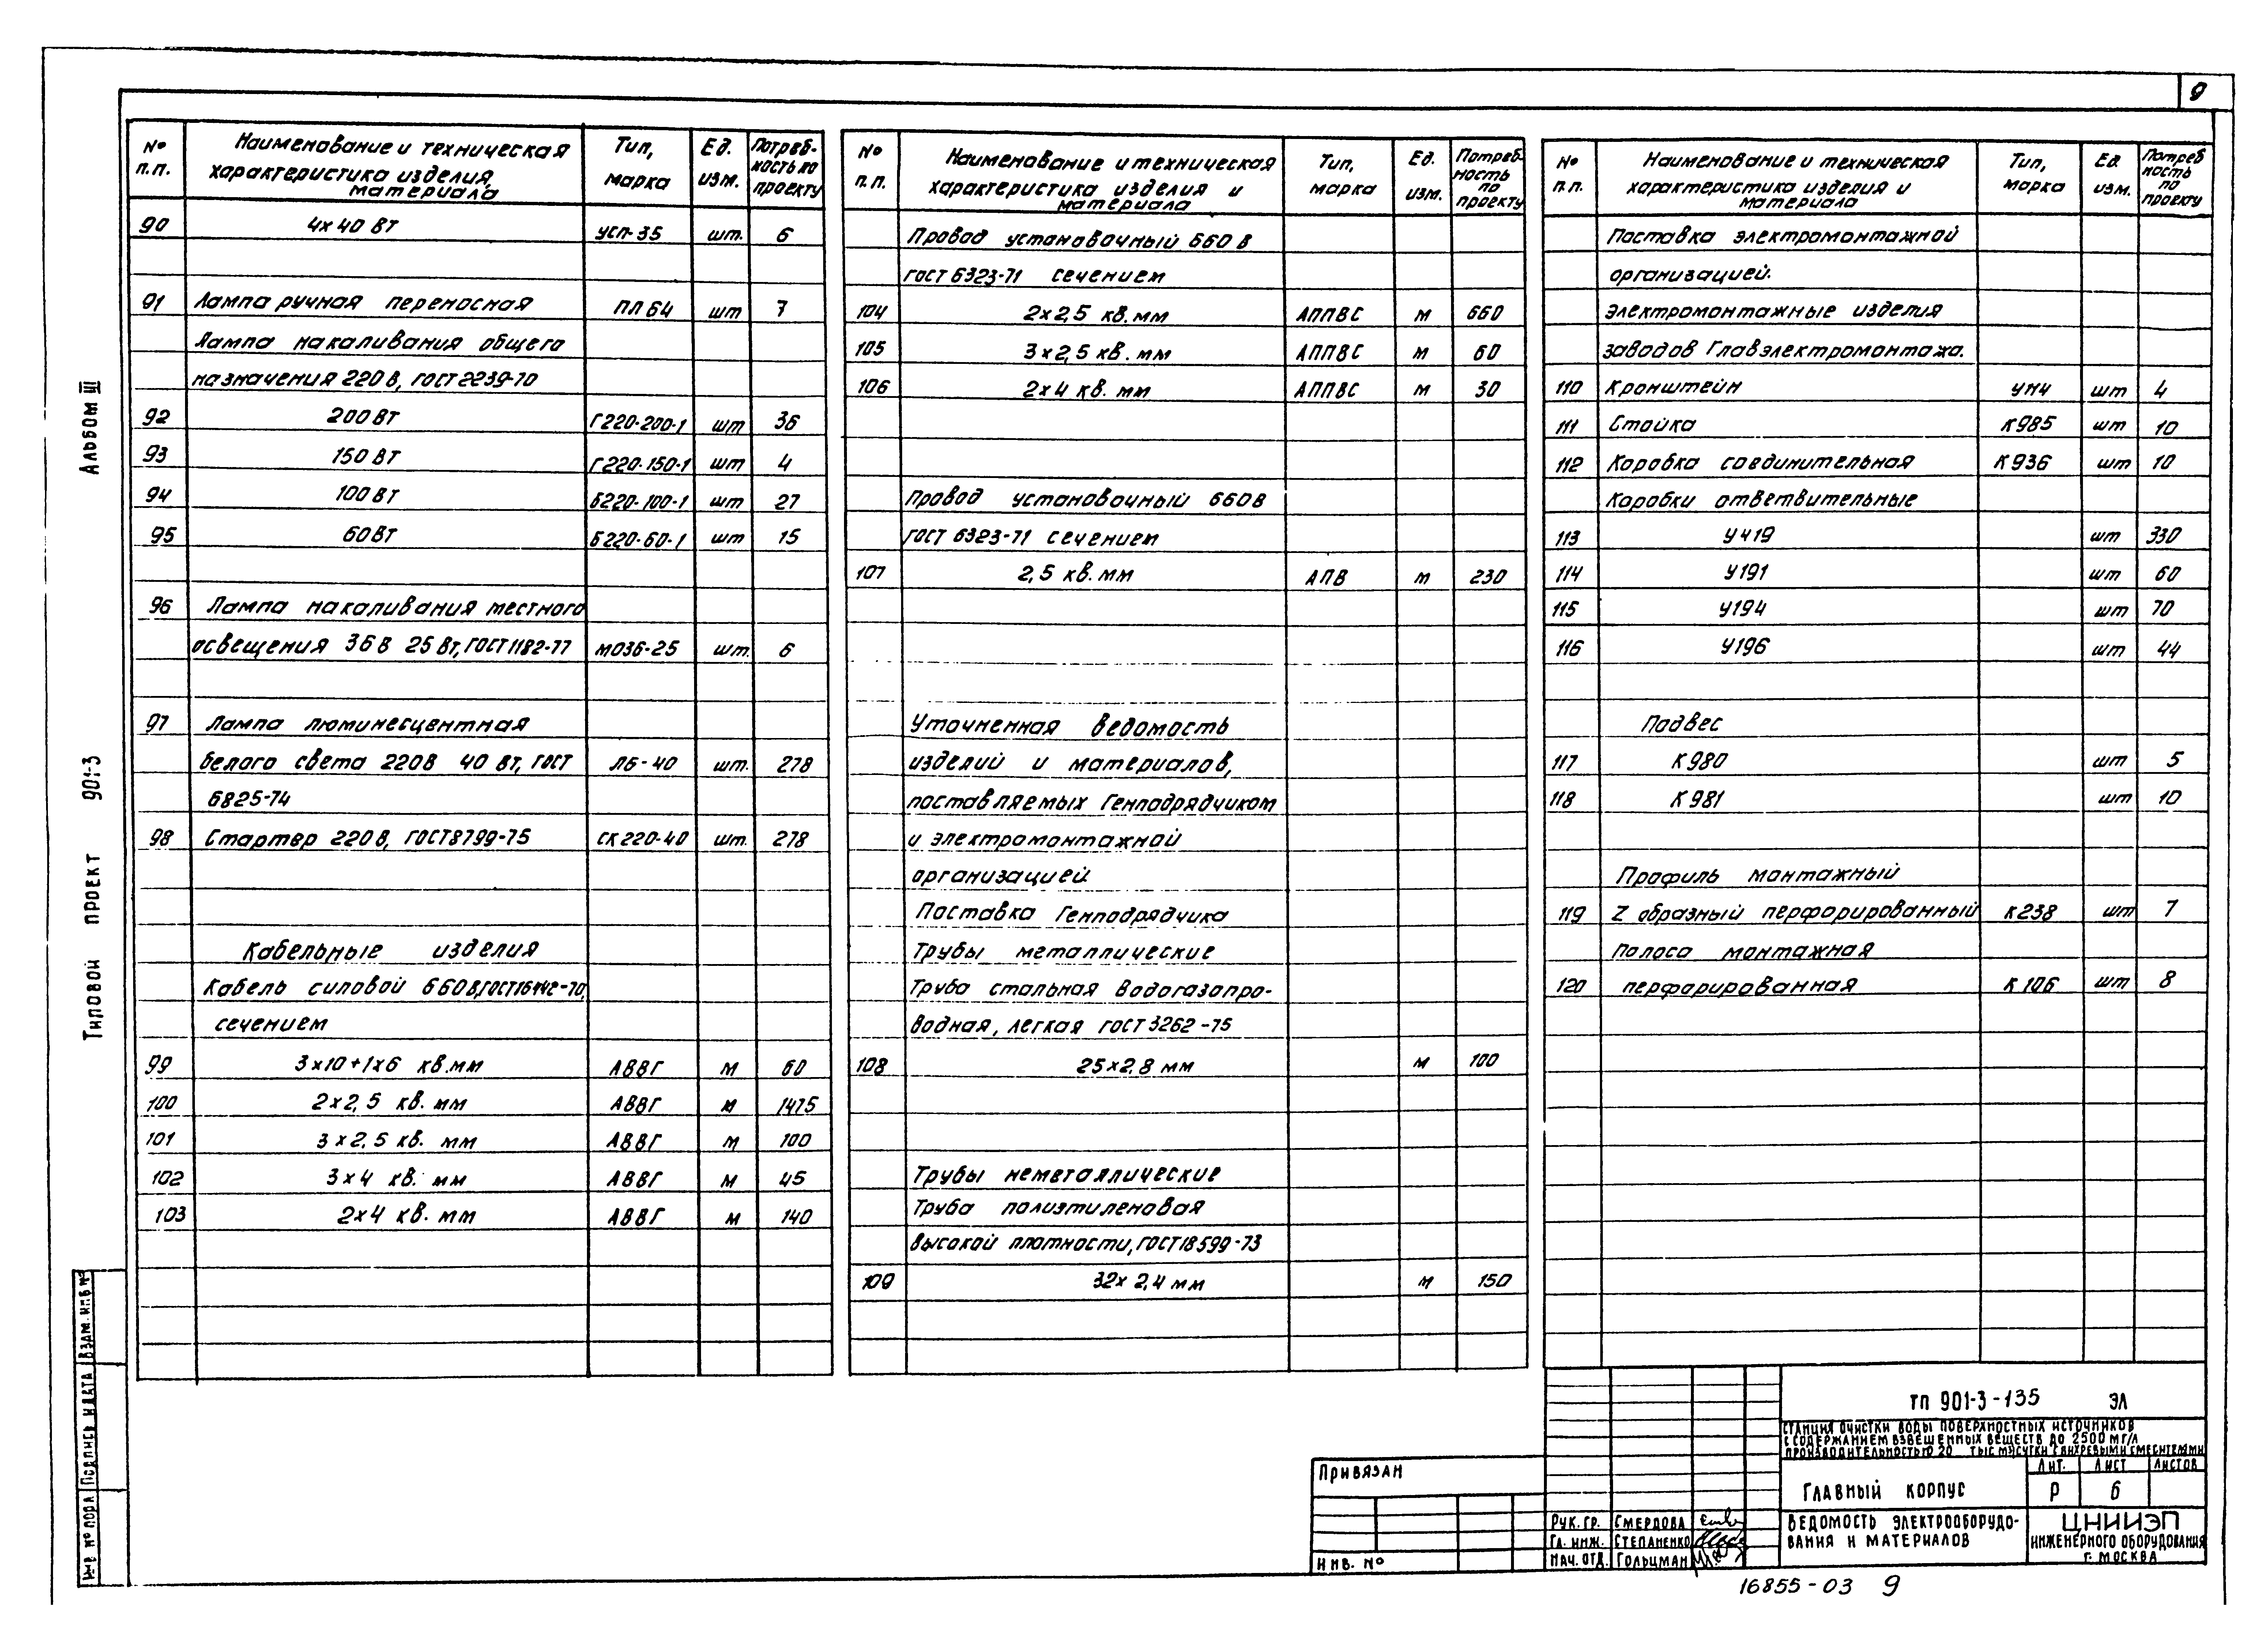 9
№ п.п. Наименование и техническая характеристика изделия, материала Тип, марка Ед. изм. Потреб-ность по проекту
90 4х40 Вт УСП-35 шт. 6
91 Лампа ручная переносная ПЛ 64 шт 7
Лампа накаливания общего
назначения 220 В, ГОСТ 2239-70
92 200 Вт Г220-200-1 шт 36
93 150 Вт Г220-150-1 шт 4
94 100 Вт Б220-100-1 шт 27
95 60 Вт Б220-60-1 шт 15
96 Лампа накаливания местного
освещения 36 В 25 Вт, ГОСТ 1182-77 МО36-25 шт. 6
97 Лампа люминесцентная
белого света 220В 40 Вт, ГОСТ ЛБ-40 шт. 278
6825-74
98 Стартер 220 В, ГОСТ 8799-75 СК 220-40 шт. 278
Кабельные изделия
Кабель силовой 660 В, ГОСТ 16442-70,
сечением
99 3х10+1х6 кв.мм АВВГ м 60
100 2х2,5 кв. мм АВВГ м 1475
101 3х2,5 кв. мм АВВГ м 100
102 3х4 кв. мм АВВГ м 45
103 2х4 кв. мм АВВГ м 140
№ п.п. Наименование и техническая характеристика изделия и материала Тип, марка Ед. изм. Потреб-ность по проекту
Провод установочный 660 В
ГОСТ 6323-71 сечением
104 2х2,5 кв. мм АППВС м 660
105 3х2,5 кв. мм АППВС м 60
106 2х4 кв. мм АППВС м 30
Провод установочный 660В
ГОСТ 6323-71 сечением
107 2,5 кв. мм АПВ м 230
Уточненная ведомость
изделий и материалов,
поставляемых Генподрядчиком
и электромонтажной
организацией
Поставка Генподрядчика
Трубы металлические
Труба стальная водогазопро-
водная, легкая ГОСТ 3262-75
108 25х2,8 мм м 100
Трубы неметаллические
Труба полиэтиленовая
высокой плотности, ГОСТ 18599-73
109 32х2,4 мм м 150
№ п.п. Наименование и техническая характеристика изделия и материала Тип, марка Ед. изм. Потреб ность по проекту
Поставка электромонтажной
организацией.
Электромонтажные изделия
заводов Главэлектромонтажа.
110 Кронштейн УН4 шт 4
111 Стойка К985 шт 10
112 Коробка соединительная К936 шт 10
Коробки ответвительные
113 У419 шт 330
114 У191 шт 60
115 У194 шт 70
116 У196 шт 44
Подвес
117 К980 шт 5
118 К981 шт 10
Профиль монтажный
119 Z образный перфорированный К238 шт 7
Полоса монтажная
120 перфорированная К106 шт 8
Альбом III
Типовой проект 901-3
Инв № подл Подпись и дата Взам. инв №
Привязан
Инв. №
Рук. гр. Смердова
Гл. инж. Степаненко
Нач. отд. Гольцман
ТП 901-3-135 ЭЛ
Станция очистки воды поверхностных источников
с содержанием взвешенных веществ до 2500 мг/л
производительностью 20 тыс м³/сутки с вихревыми смесителями
Главный корпус
Лит. Лист Листов
Р 6
Ведомость электрооборудо-
вания и материалов
ЦНИИЭП
инженерного оборудования
г. Москва
16855-03 9